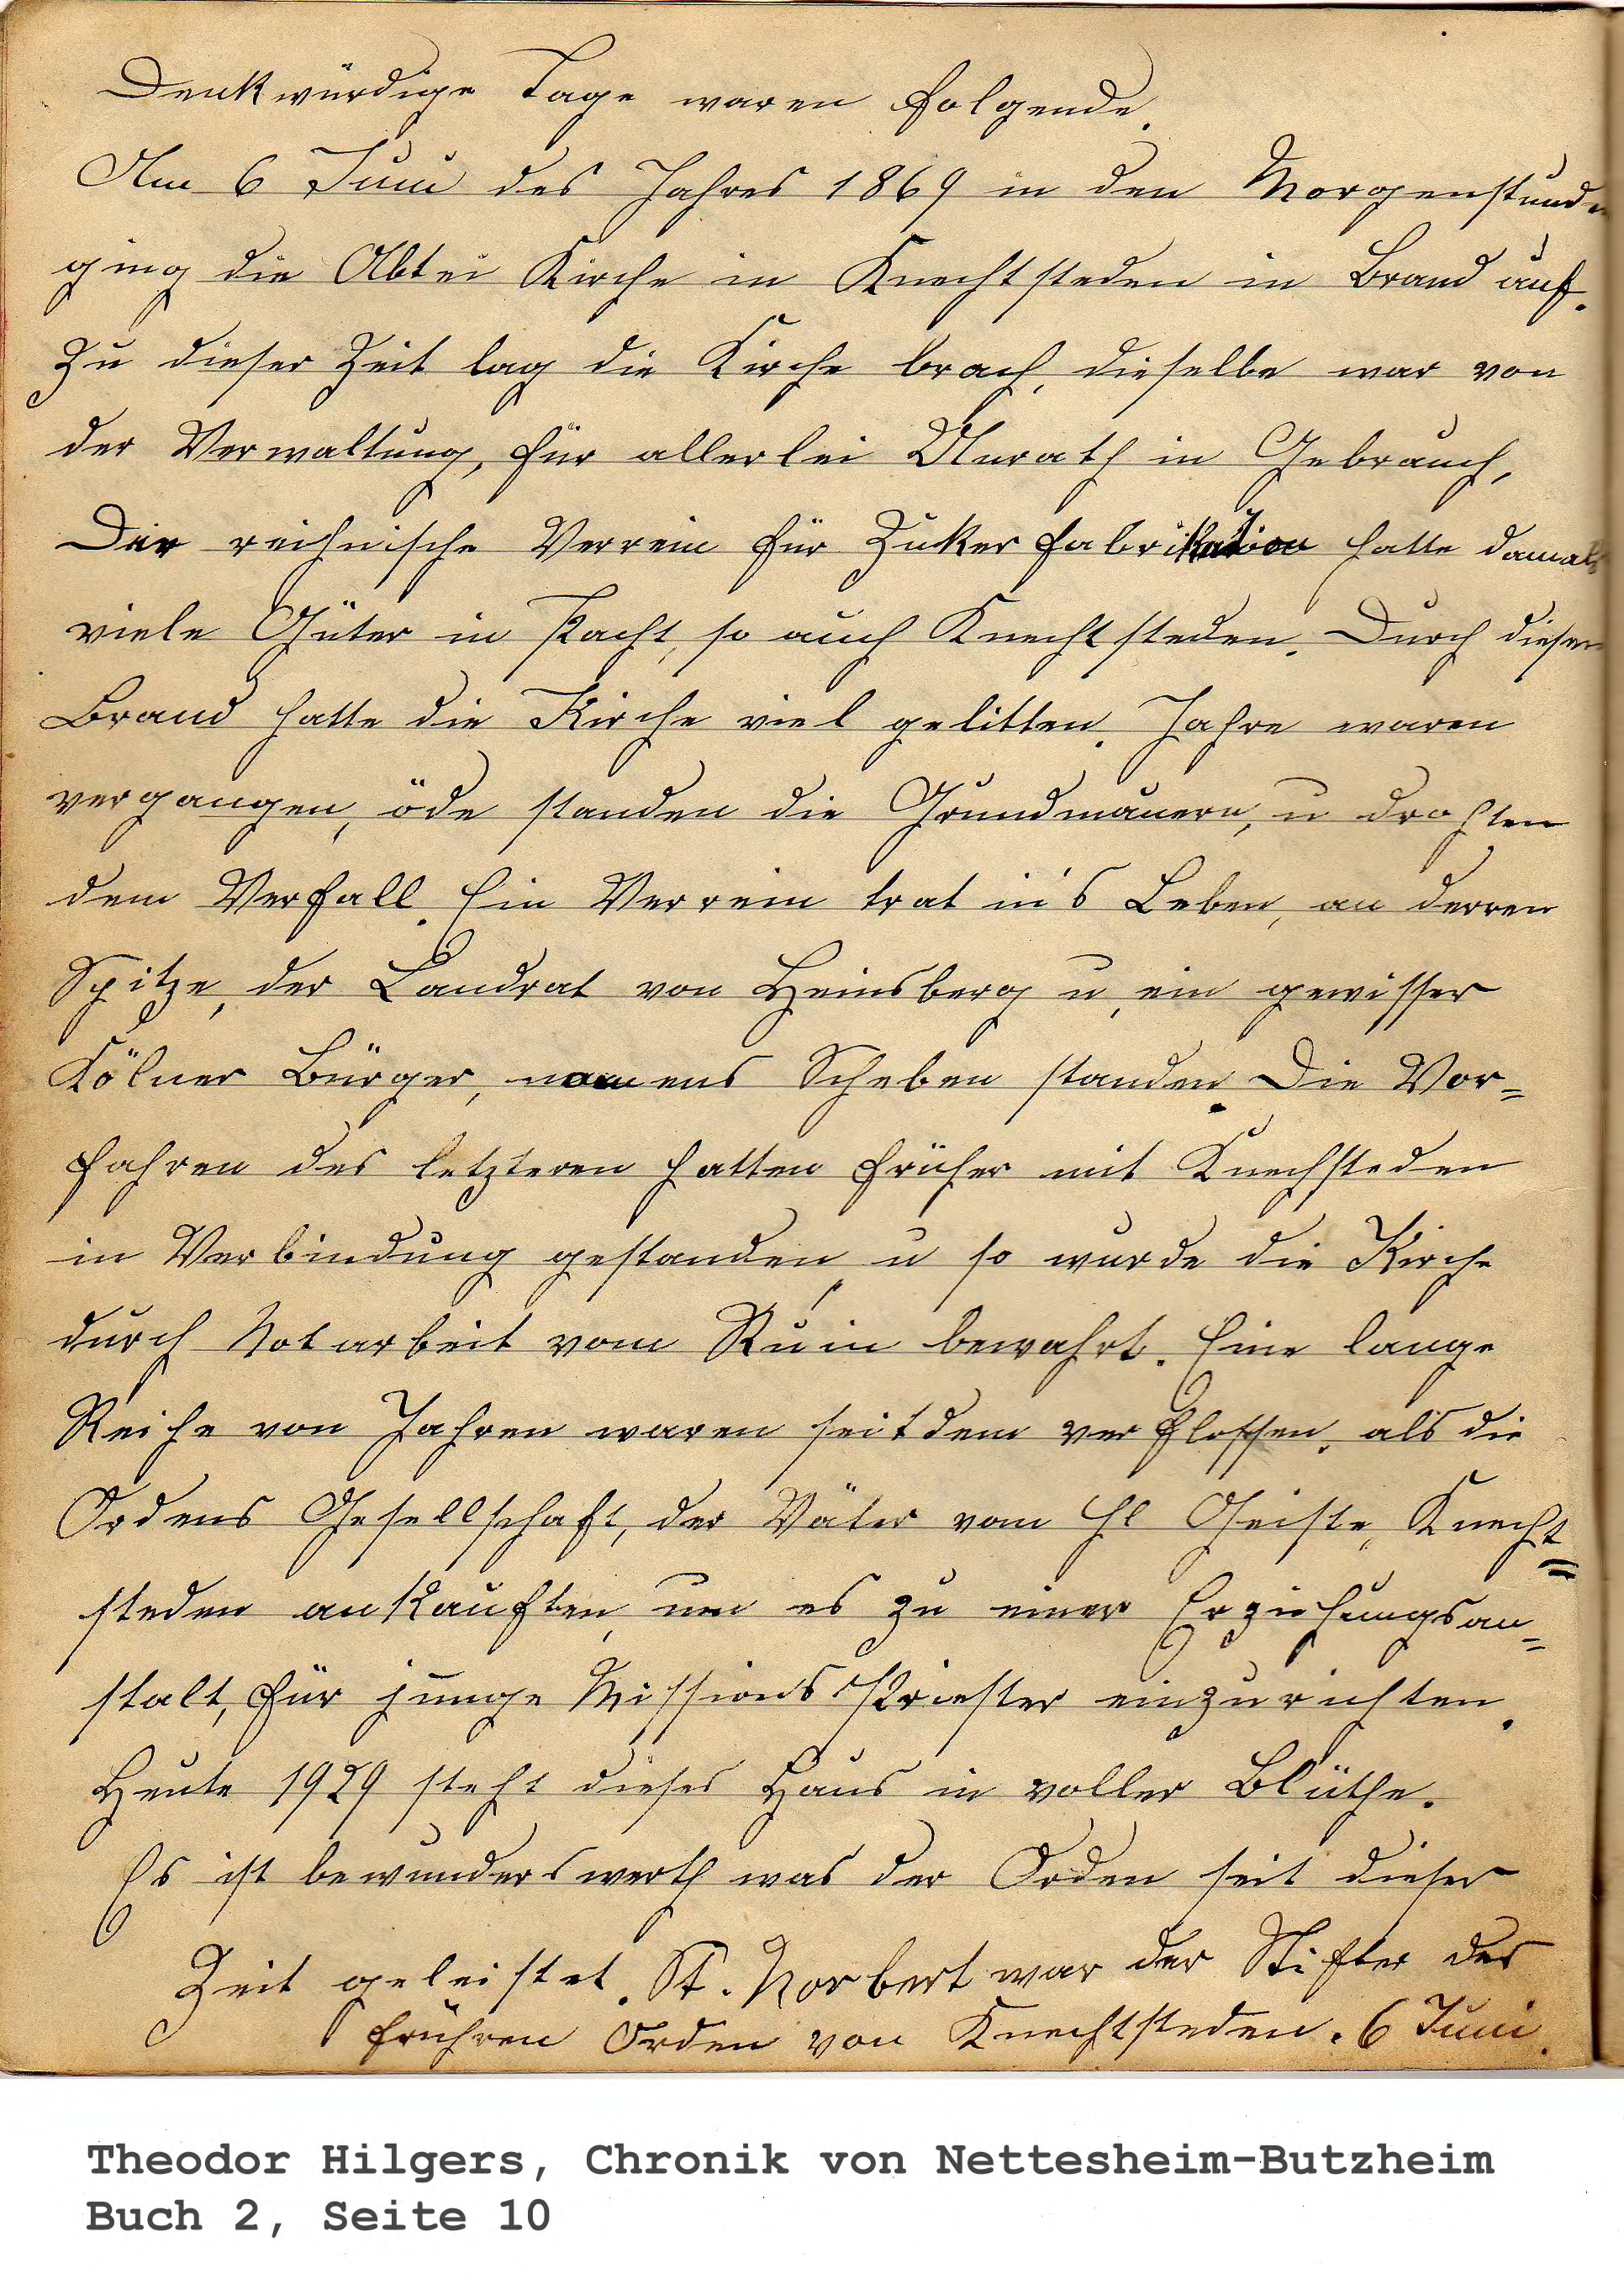 Denkwürdige Tage waren folgende.
Am 6 Juni des Jahres 1869 in den Morgenstunden
ging die Abtei Kirche in Knechtsteden in Brand auf.
Zu dieser Zeit lag die Kirche brach, dieselbe war von
der Verwaltung, für allerlei Unrath in Gebrauch,
Der reihnische Verrein für Zuker fabrikation hatte damals
viele Güter in Pacht, so auch Knechtsteden. Durch diesen
Brand hatte die Kirche viel gelitten. Jahre waren
vergangen, öde standen die Grundmauern, u drohten
dem Verfall. Ein Verrein trat in's Leben, an derren
Spitze, der Landrat von Heinsberg u, ein gewisser
Kölner Bürger, namens Scheben standen. Die Vor=
fahren des letzteren hatten früher mit Knechsteden
in Verbindung gestanden, u so wurde die Kirche
durch Notarbeit vom Ruin bewahrt. Eine lange
Reihe von Jahren waren seitdem verflossen, als die
Ordens Gesellschaft, der Väter vom Hl Geiste, Knecht=
steden ankauften, um es zu einer Erziehungsan=
stalt, für junge Missions Priester einzurichten.
Heute 1929 steht dieses Haus in voller Blüthe.
Es ist bewunderswerth was der Orden seit dieser
Zeit geleistet. St. Norbert war der Stifter des
frühren Orden von Knechtsteden. 6 Juni.
Theodor Hilgers, Chronik von Nettesheim-Butzheim
Buch 2, Seite 10